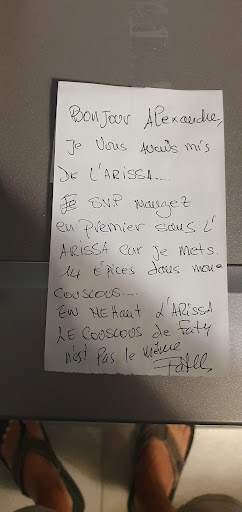 Bonjour Alexandre,
Je Vous avais mis
De L'ARISSA....
Je SVP mangez
en premier sans L'
ARISSA car je mets.
14 épices dans
couscous....
EN METTANT L'ARISSA
LE COUSCOUS de Faty
n'est PAS le même